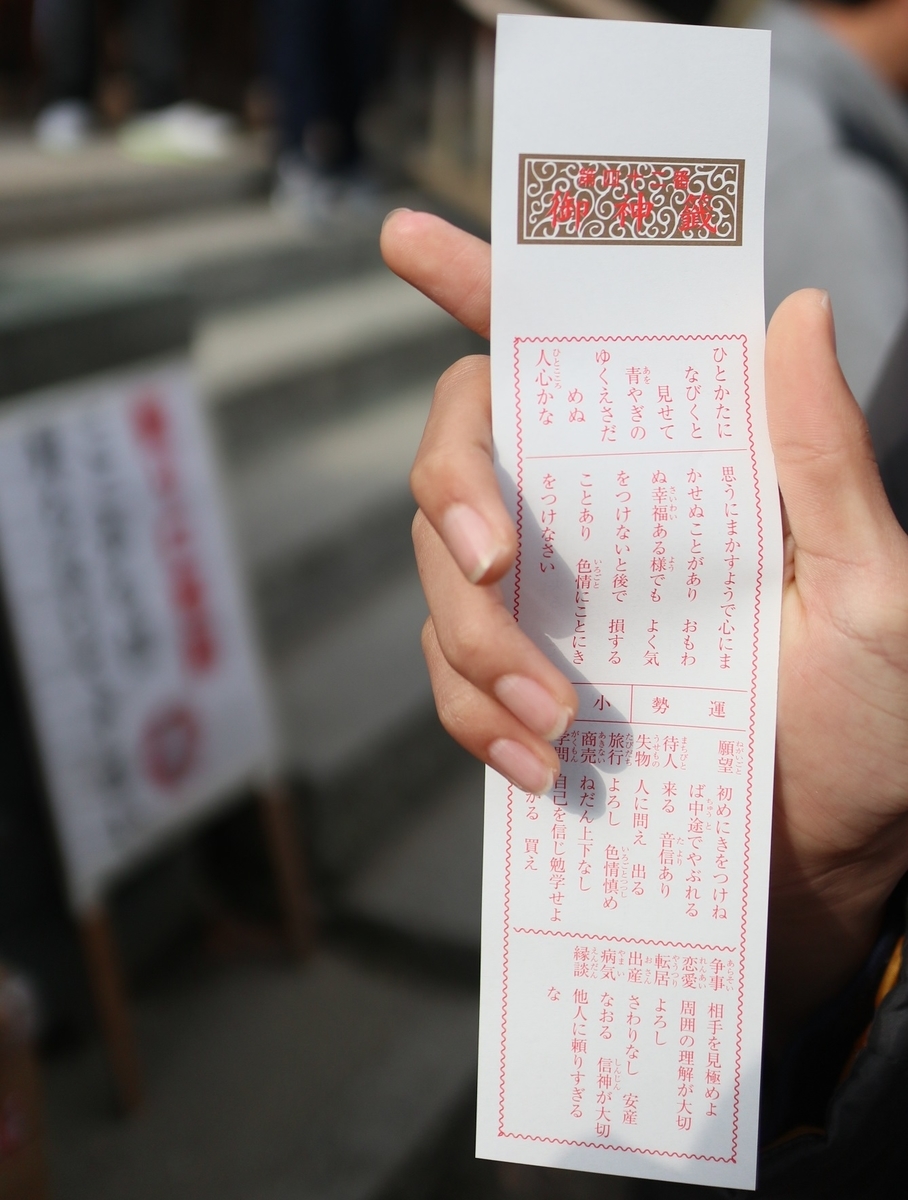 第四十二番
御神籤
ひとかたに
なびくと
見せて
青やぎの
ゆくえさだ
めぬ
人心かな
思うにまかすようで心にま
かせぬことがあり おもわ
ぬ幸福ある様でも よく気
をつけないと後で 損する
ことあり 色情にことにき
をつけなさい
運勢 小
願望 初めにきをつけね
ば中途でやぶれる
待人 来る 音信あり
失物 人に問え 出る
旅行 よろし 色情慎め
商売 ねだん上下なし
学問 自己を信じ勉学せよ
がる 買え
争事 相手を見極めよ
恋愛 周囲の理解が大切
転居 よろし
出産 さわりなし 安産
病気 なおる 信神が大切
縁談 他人に頼りすぎる
な